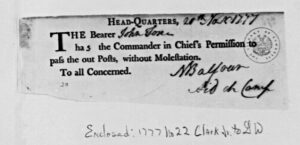 HEAD-QUARTERS, 20th Novr 1777
THE Bearer John Jones
has the Commander in Chief's Permission to
pass the out Posts, without Molestation.
To all Concerned.
NBalfour
Aid de Camp
Enclosed: 1777 22 Clark to GW